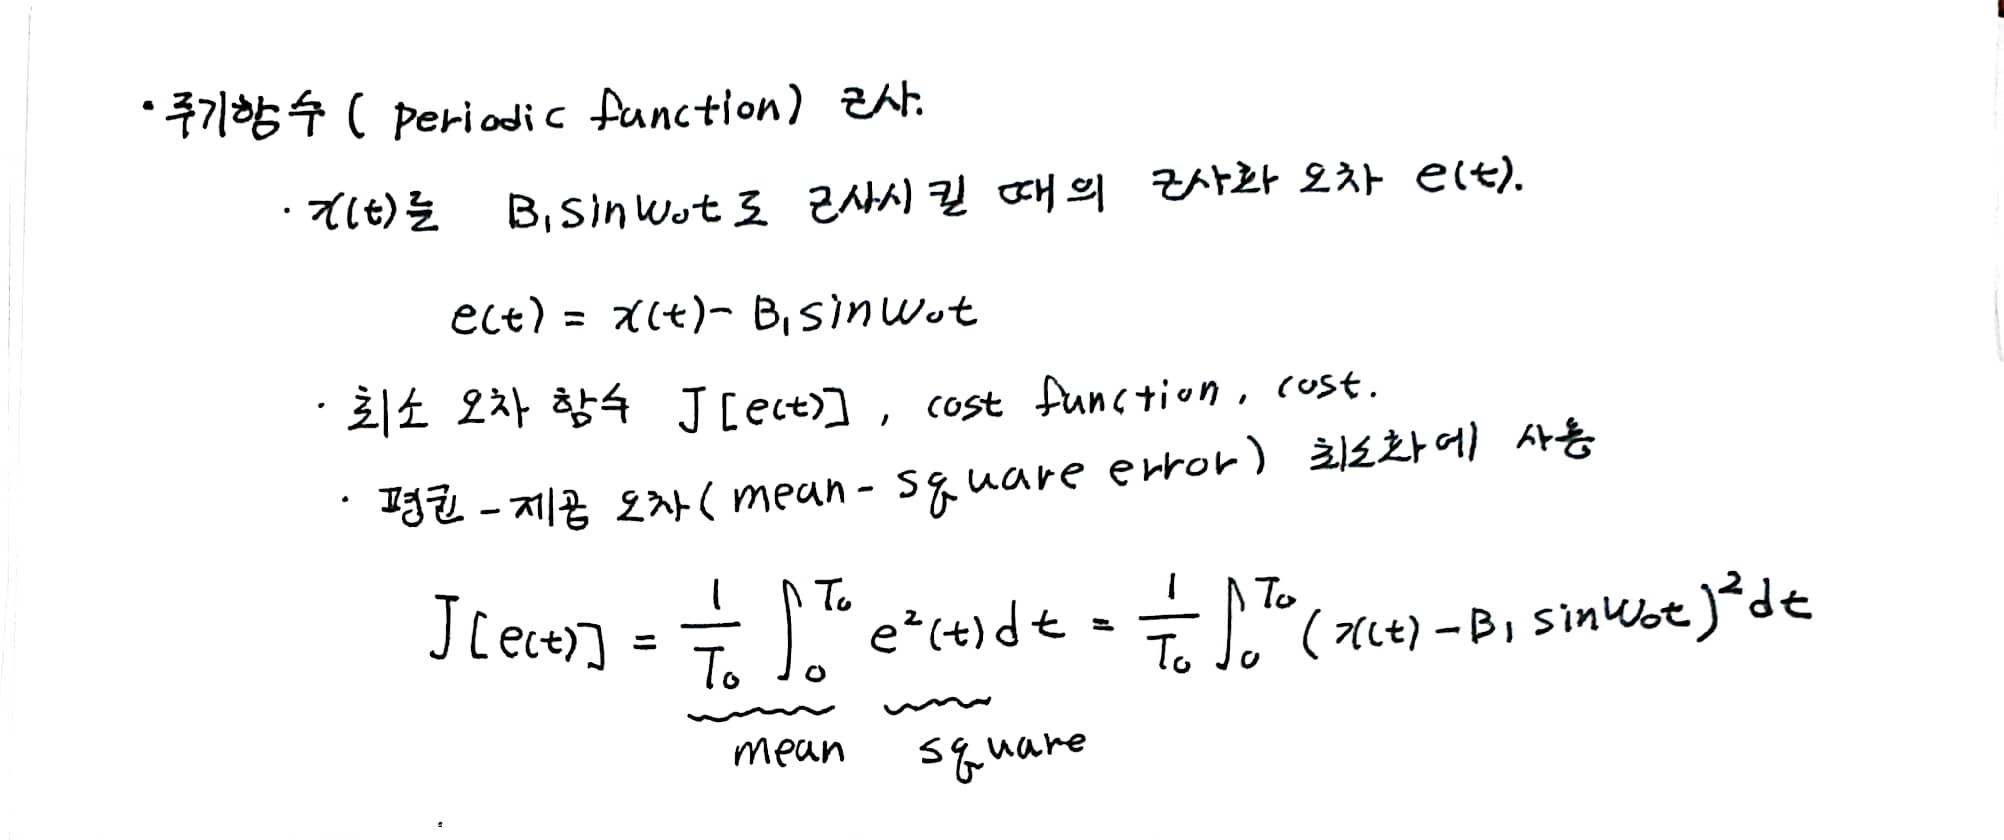 · 주기함수 ( periodic function) 근사.
· x(t)를 B₁sinω₀t로 근사시킬 때의 근사화 오차 e(t).
e(t) = x(t) - B₁sinω₀t
· 최소 오차 함수 J[e(t)] , cost function, cost.
· 평균 - 제곱 오차( mean - square error) 최소화에 사용
J[e(t)] = 1/T₀ ∫₀^T₀ e²(t)dt = 1/T₀ ∫₀^T₀ (x(t) - B₁ sinω₀t)²dt
mean square